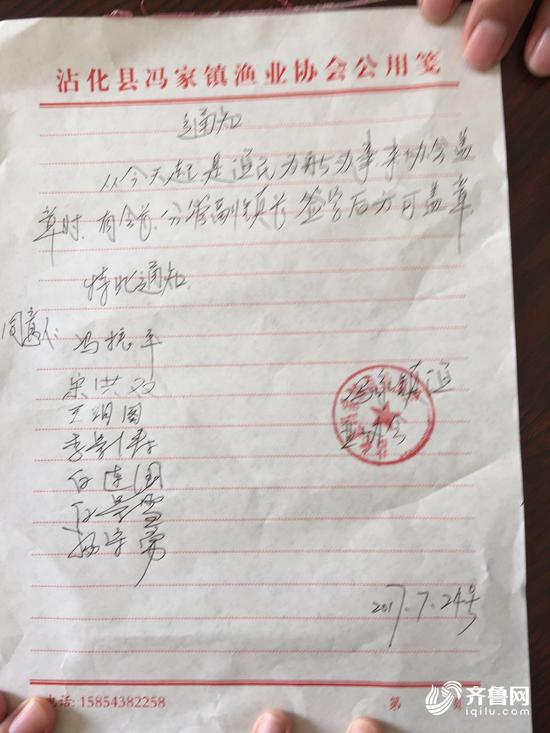 沾化县冯家镇渔业协会公用笺
通知
从今天起是渔民为船办事,来协会盖
章时.有会长.分管副镇长签字后方可盖章
特此通知
同意人:
冯振平
宋洪双
王
李
白连国
白景雪
孙守勇
冯家镇渔
业协会
2017.7.24号
电话:15854382258
第 页
齐鲁网
iqilu.com